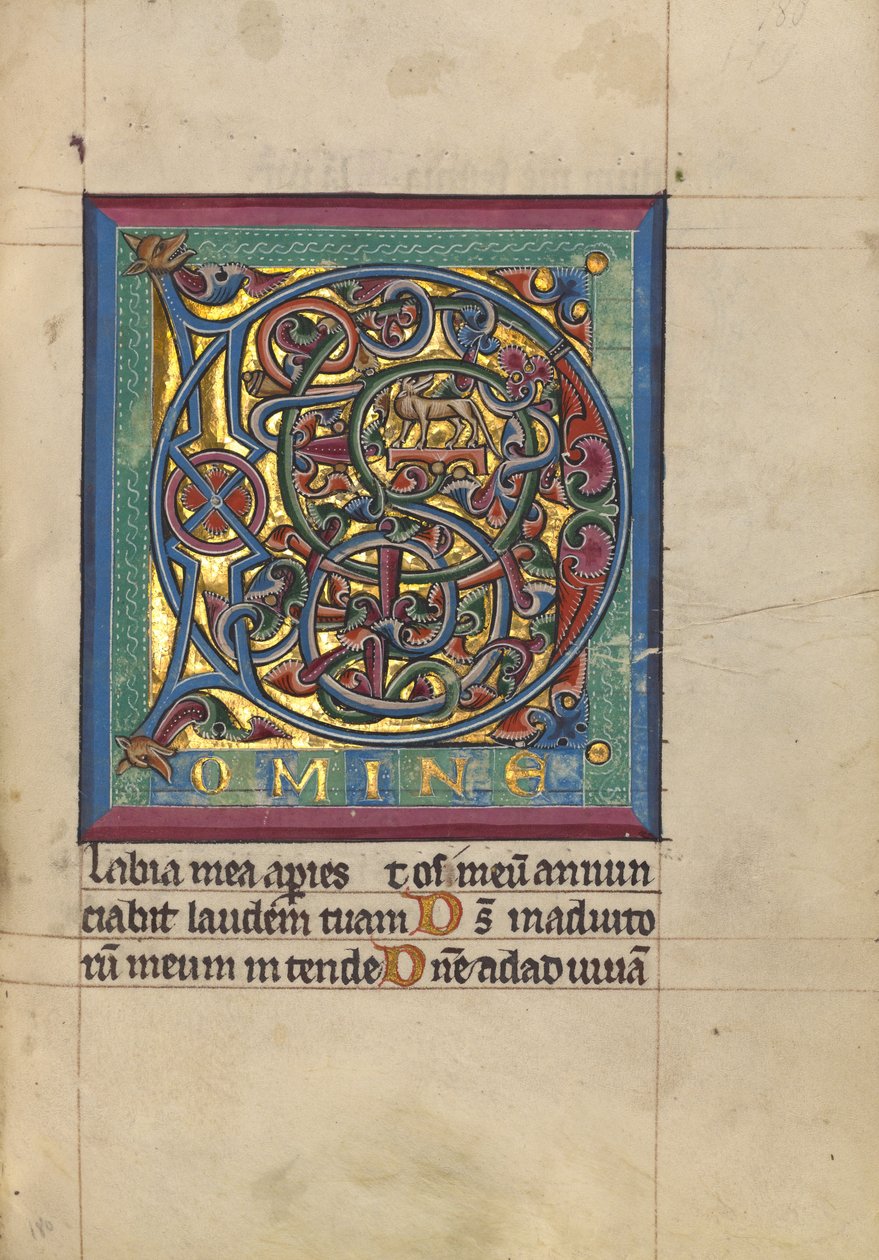 180
179
D
OMINE
labia mea apies tos meū annun
ciabit laudem tuam D s̄ inadiuto
rū meum in tende D n̄e adadiuuā
180